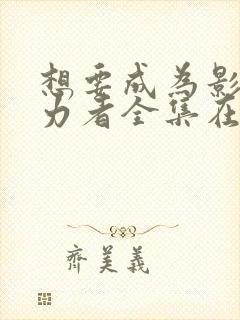 想要成为影
力者全集在
齐美義